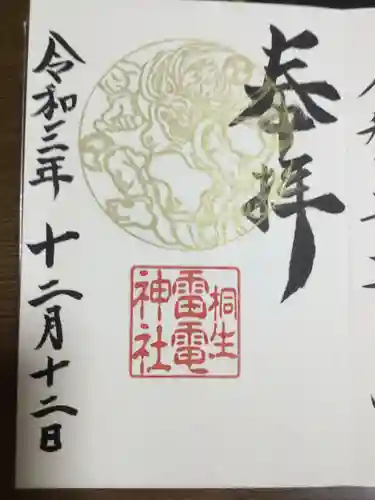 奉拝
桐生
雷電
神社
令和三年十二月十二日